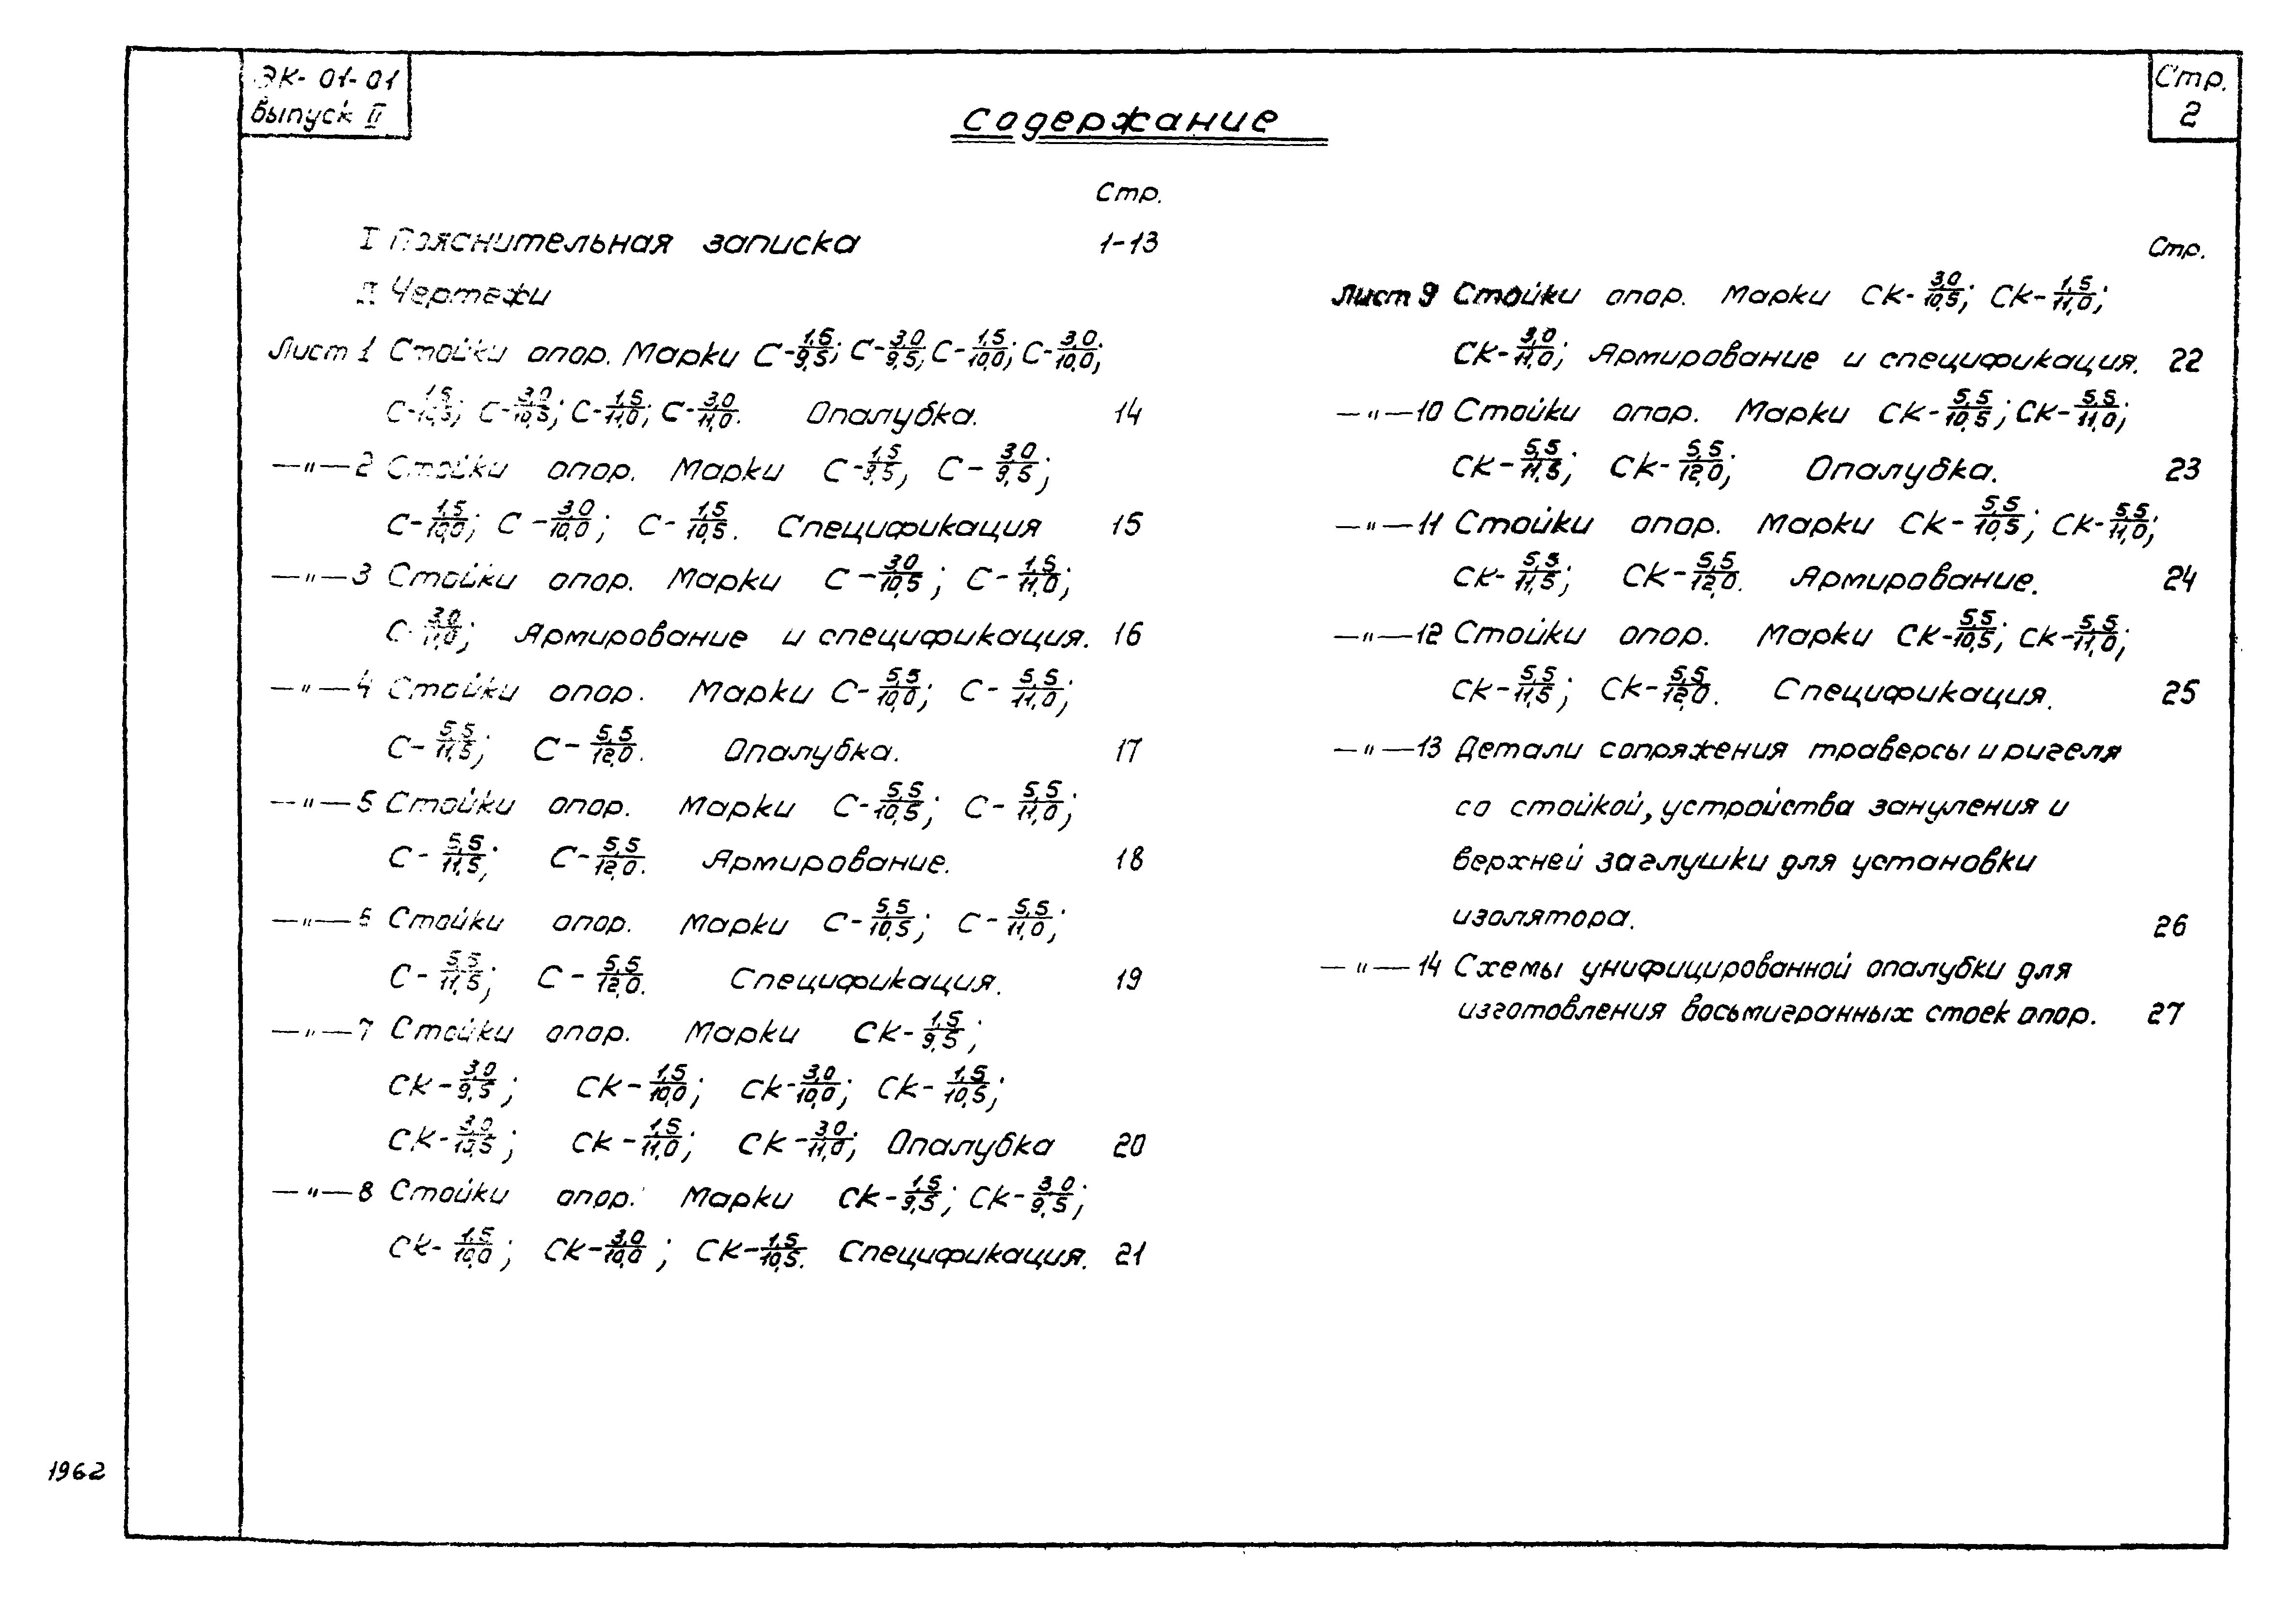 ЭК-01-01
Выпуск II
Стр.
2
Содержание
Стр.
I Пояснительная записка 1-13
II Чертежи
Лист 1 Стойки опор. Марки С-1,5/9,5; С-3,0/9,5; С-1,5/10,0; С-3,0/10,0;
С-1,5/10,5; С-3,0/10,5; С-1,5/11,0; С-3,0/11,0. Опалубка. 14
—"—2 Стойки опор. Марки С-1,5/9,5; С-3,0/9,5;
С-1,5/10,0; С-3,0/10,0; С-1,5/10,5. Спецификация 15
—"—3 Стойки опор. Марки С-3,0/10,5; С-1,5/11,0;
С-3,0/11,0; Армирование и спецификация. 16
—"—4 Стойки опор. Марки С-5,5/10,0; С-5,5/11,0;
С-5,5/11,5; С-5,5/12,0. Опалубка. 17
—"—5 Стойки опор. Марки С-5,5/10,5; С-5,5/11,0;
С-5,5/11,5; С-5,5/12,0. Армирование. 18
—"—6 Стойки опор. Марки С-5,5/10,5; С-5,5/11,0;
С-5,5/11,5; С-5,5/12,0. Спецификация. 19
—"—7 Стойки опор. Марки СК-1,5/9,5;
СК-3,0/9,5; СК-1,5/10,0; СК-3,0/10,0; СК-1,5/10,5;
СК-3,0/10,5; СК-1,5/11,0; СК-3,0/11,0; Опалубка 20
—"—8 Стойки опор. Марки СК-1,5/9,5; СК-3,0/9,5;
СК-1,5/10,0; СК-3,0/10,0; СК-1,5/10,5. Спецификация. 21
Стр.
Лист 9 Стойки опор. Марки СК-3,0/10,5; СК-1,5/11,0;
СК-3,0/11,0; Армирование и спецификация. 22
—"—10 Стойки опор. Марки СК-5,5/10,5; СК-5,5/11,0;
СК-5,5/11,5; СК-5,5/12,0; Опалубка. 23
—"—11 Стойки опор. Марки СК-5,5/10,5; СК-5,5/11,0;
СК-5,5/11,5; СК-5,5/12,0. Армирование. 24
—"—12 Стойки опор. Марки СК-5,5/10,5; СК-5,5/11,0;
СК-5,5/11,5; СК-5,5/12,0. Спецификация. 25
—"—13 Детали сопряжения траверсы и ригеля
со стойкой, устройства зануления и
верхней заглушки для установки
изолятора. 26
—"—14 Схемы унифицированной опалубки для
изготовления восьмигранных стоек опор. 27
1962